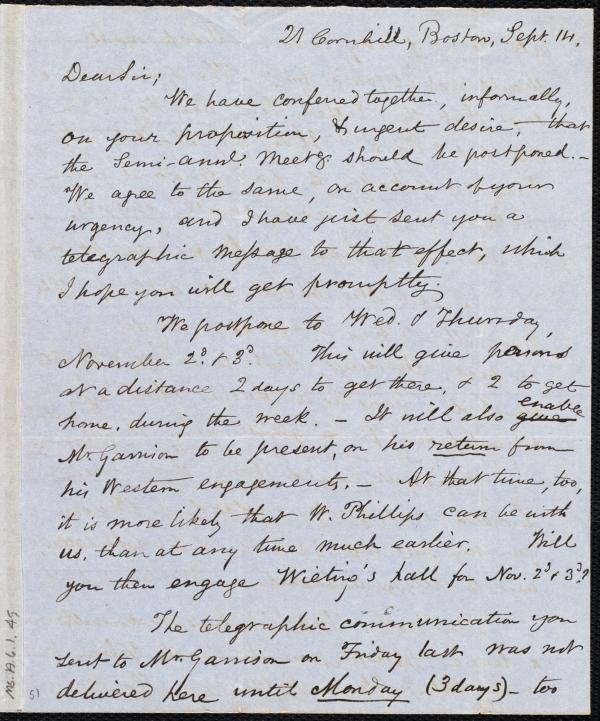 21 Cornhill, Boston, Sept. 14.
Dear Sir;
We have conferred together, informally,
on your proposition, & urgent desire, that
the Semi-annl. Meetg. should be postponed. -
We agree to the same, on account of your
urgency, and I have just sent you a
telegraphic message to that effect, which
I hope you will get promptly.
We postpone to Wed. & Thursday,
November 2d. & 3d. This will give persons
at a distance 2 days to get there, & 2 to get
home, during the week. - It will also give enable
Mr. Garrison to be present, on his return from
his Western engagements. - At that time, too,
it is more likely that W. Phillips can be with
us, than at any time much earlier. Will
you then engage Wieting's hall for Nov. 2d & 3d?
The telegraphic communication you
sent to Mr. Garrison on Friday last was not
delivered here until Monday (3 days) - too
Ms. A. 6. 1. 45
51